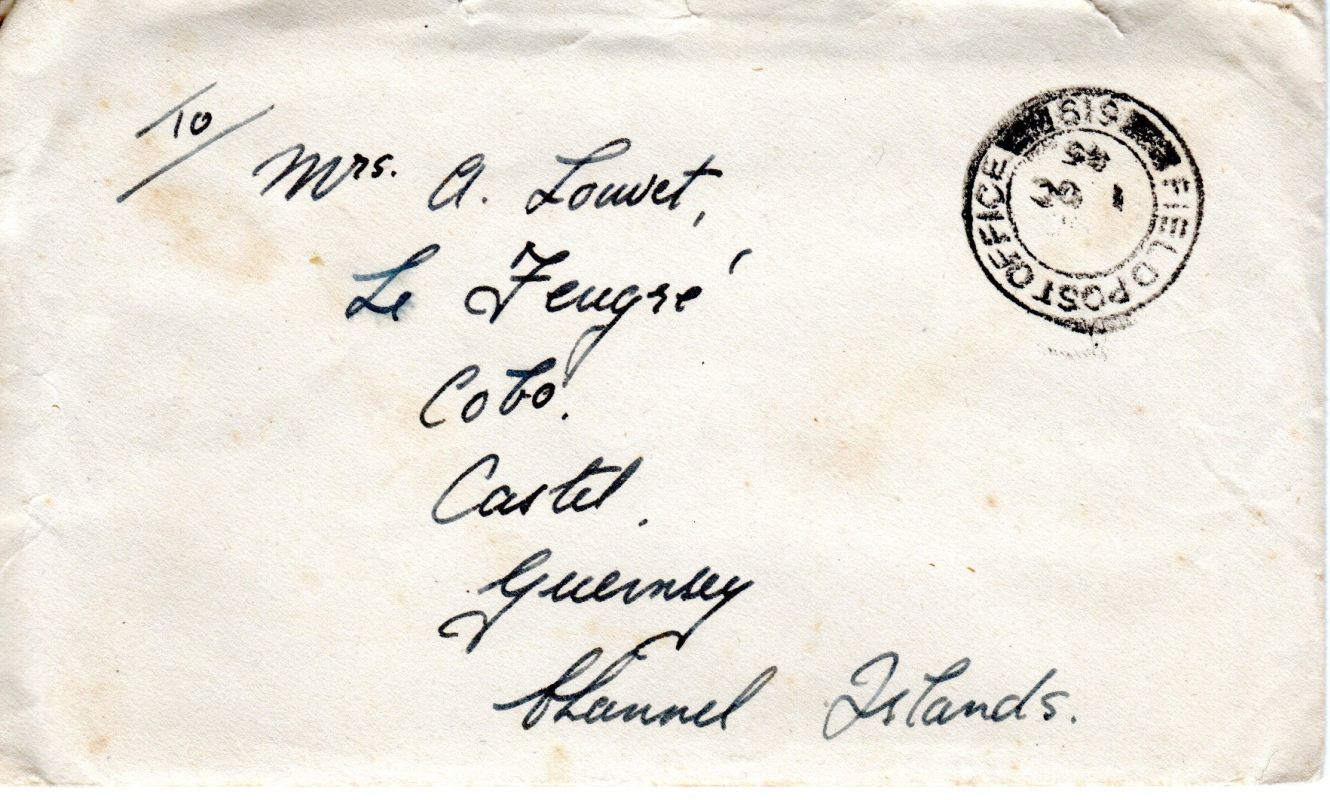 To/
Mrs. A. Louvet,
Le Feugré
Cobo.
Castel.
Guernsey
Channel Islands.
FIELD POST OFFICE
619
45